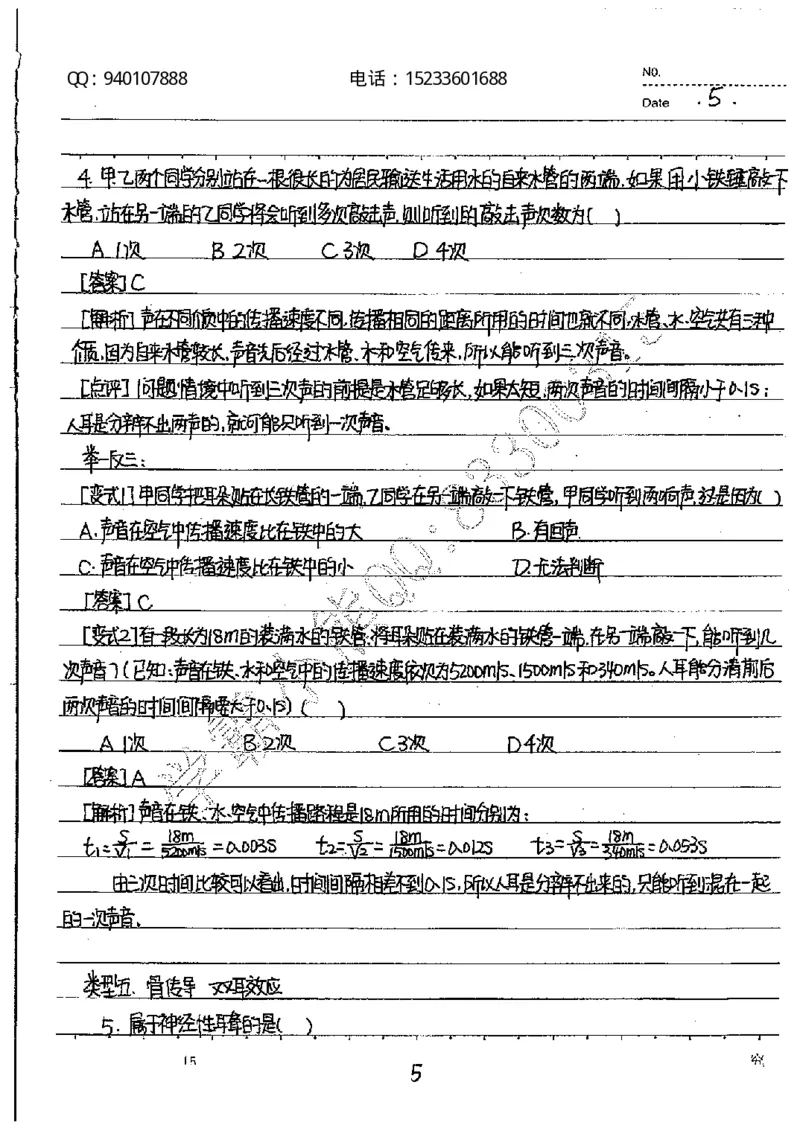 QQ：940107888 电话：15233601688 No.
Date .5.
4. 甲乙两个同学分别站在一根很长的为居民输送生活用水的自来水管的两端,如果用小铁锤敲一下
水管,站在另一端的乙同学将会听到多次敲击声,则听到的敲击声次数为( )
A 1次 B 2次 C 3次 D 4次
[答案]C
[解析]声在不同介质中的传播速度不同,传播相同的距离所用的时间也就不同,水管、水、空气共有三种
介质,因为自来水管较长,声音先后经过水管、水和空气传来,所以能听到三次声音。
[点评]问题情境中听到三次声的前提是水管足够长,如果太短,两次声音的时间间隔小于0.1S;
人耳是分辨不出两声的,就可能只听到一次声音。
举一反三:
[变式1]甲同学把耳朵贴在长铁管的一端,乙同学在另一端敲一下铁管,甲同学听到两响声,这是因为( )
A.声音在空气中传播速度比在铁中的大 B.有回声
C.声音在空气中传播速度比在铁中的小 D.无法判断
[答案]C
[变式2]有一段长为18m的装满水的铁管,将耳朵贴在装满水的铁管一端,在另一端敲一下,能听到几
次声音?(已知:声音在铁、水和空气中的传播速度依次为5200m/s、1500m/s和340m/s。人耳能分清前后
两次声音的时间间隔要大于0.1S)( )
A 1次 B 2次 C 3次 D 4次
[答案]A
[解析]声音在铁、水、空气中传播路程是18m所用的时间分别为:
t1=S/V1=18m/5200m/s=0.003S t2=S/V2=18m/1500m/s=0.012S t3=S/V3=18m/340m/s=0.053S
由三次时间比较可以看出,时间间隔相差不到0.1S,所以人耳是分辨不出来的,只能听到混在一起
的一次声音。
类型五、骨传导 双耳效应
5. 属于神经性耳聋的是( )
5